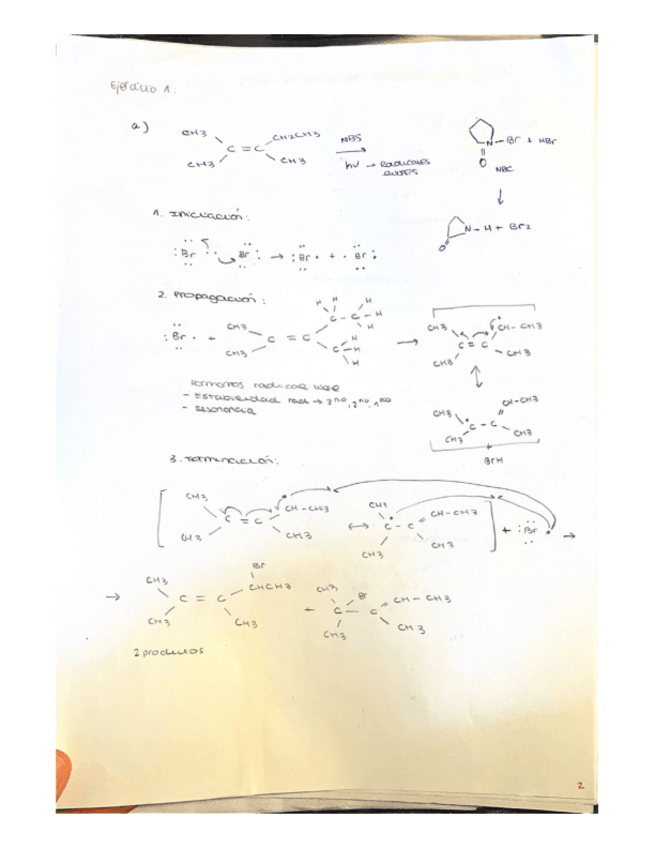 Ejercicio 1:
a)
CH3 CH2CH3 NBS
C = C
CH3 CH3 hν → Radicales
Br + HBr
N
O NBC
N - H + Br2
O
1. Iniciación:
:Br .. Br: → :Br· + ·Br:
2. Propagación:
:Br· + CH3 C = C CH3
H H H
C - C - H
H
H
C - H
H
→ CH3 CH - CH3
C = C
CH3 CH3
CH - CH3
CH3 C - C
CH3 CH3
+
BrH
Formamos radical
- Estabilidad rad → 3rio, 2rio, 1rio
- Resonancia
3. Terminación:
CH3 CH - CH3 CH3 CH - CH3
C = C ↔ C - C + :Br· →
CH3 CH3 CH3 CH3
Br
→ CH3 CHCH3 CH3 Br CH - CH3
C = C + C - C
CH3 CH3 CH3 CH3
2 productos
2